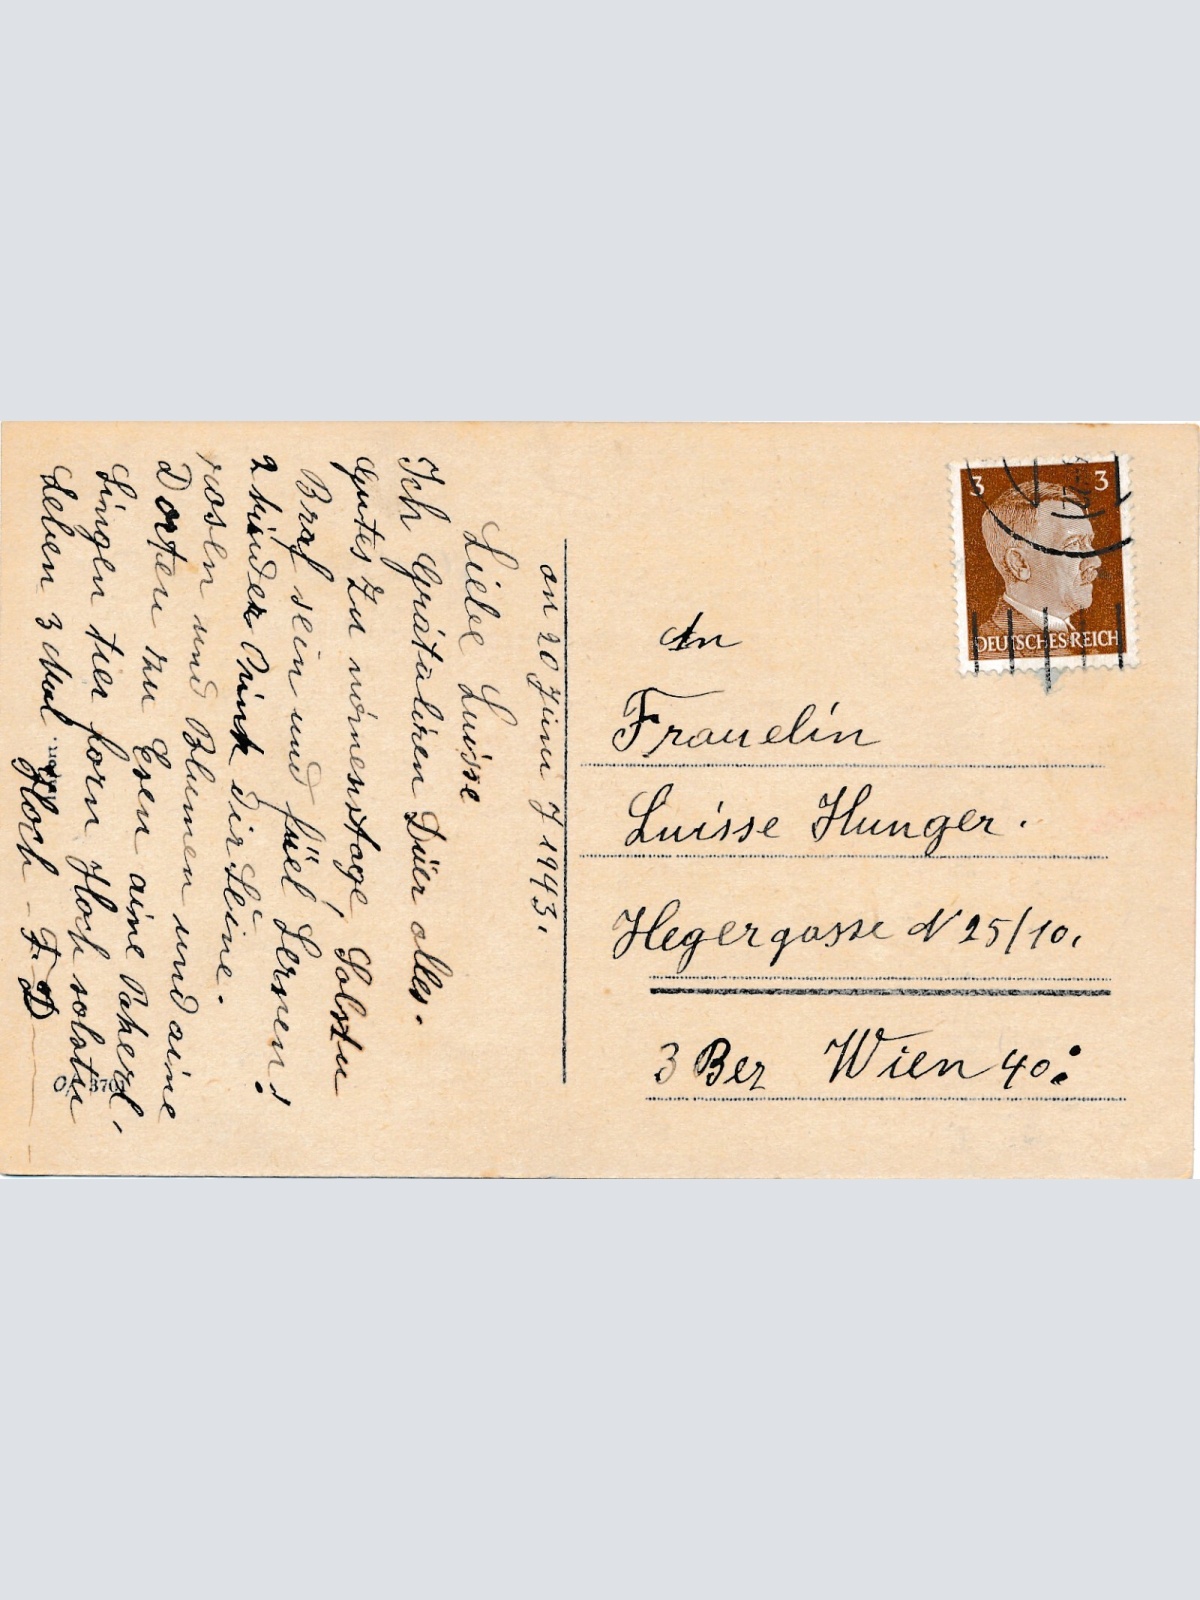 an 20 Juni J 1943.
Liebe Luisse
Ich Gratuliren Düer alles.
Gutes Zu nomenstage! Solstu
Braf sein und füel Lernen!
2 binder dir Seine.
rosen und Blumen und aine
Dorten zu Esen aine
Singen tier forn Hoch solstu
Leben 3 Mal Hoch - F. D
3 3
DEUTSCHES REICH
An
Frauelin
Luisse Hunger.
Hegergasse N 25/10.
3 Bez Wien 40